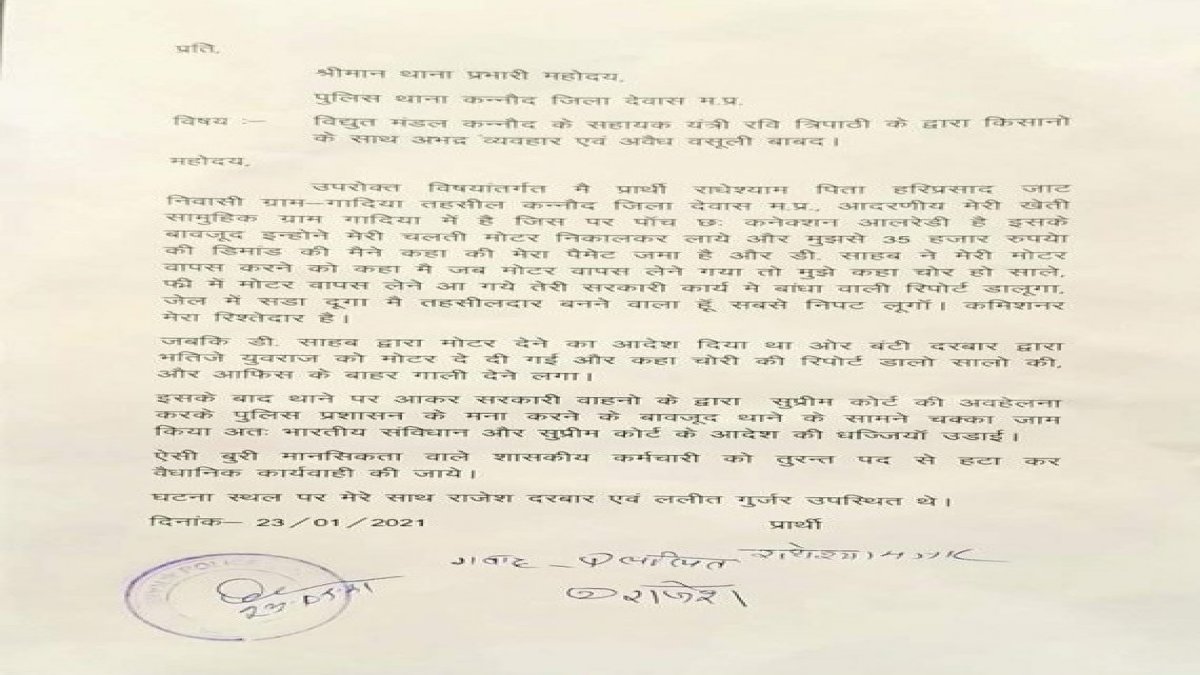 प्रति,
श्रीमान थाना प्रभारी महोदय,
पुलिस थाना कन्नौद जिला देवास म.प्र.
विषय :– विद्युत मंडल कन्नौद के सहायक यंत्री रवि त्रिपाठी के द्वारा किसानो
के साथ अभद्र व्यवहार एवं अवैध वसूली बाबद।
महोदय,
उपरोक्त विषयांतर्गत मै प्रार्थी राधेश्याम पिता हरिप्रसाद जाट
निवासी ग्राम–गादिया तहसील कन्नौद जिला देवास म.प्र., आदरणीय मेरी खेती
सामुहिक ग्राम गादिया में है जिस पर पॉच छः कनेक्शन आलरेडी है इसके
बावजूद इन्होने मेरी चलती मोटर निकालकर लाये और मुझसे 35 हजार रुपयेा
की डिमांड की मैने कहा की मेरा पैमेट जमा है और डी. साहब ने मेरी मोटर
वापस करने को कहा मै जब मोटर वापस लेने गया तो मुझे कहा चोर हो साले,
फ्री में मोटर वापस लेने आ गये तेरी सरकारी कार्य मे बांधा वाली रिपोर्ट डालूगा,
जेल में सडा दूगा मै तहसीलदार बनने वाला हूँ सबसे निपट लूगॉ। कमिशनर
मेरा रिश्तेदार है।
जबकि डी. साहब द्वारा मोटर देने का आदेश दिया था ओर बंटी दरबार द्वारा
भतिजे युवराज को मोटर दे दी गई और कहा चोरी की रिपोर्ट डालो सालो की,
और आफिस के बाहर गाली देने लगा।
इसके बाद थाने पर आकर सरकारी वाहनो के द्वारा सुप्रीम कोर्ट की अवहेलना
करके पुलिस प्रशासन के मना करने के बावजूद थाने के सामने चक्का जाम
किया अतः भारतीय संविधान और सुप्रीम कोर्ट के आदेश की धज्जियॉ उडाई।
ऐसी बुरी मानसिकता वाले शासकीय कर्मचारी को तुरन्त पद से हटा कर
वैधानिक कार्यवाही की जाये।
घटना स्थल पर मेरे साथ राजेश दरबार एवं ललीत गुर्जर उपस्थित थे।
दिनांक– 23/01/2021 प्रार्थी
गवाह – ① ललित राधेश्याम जाट
② राजेश
POLICE